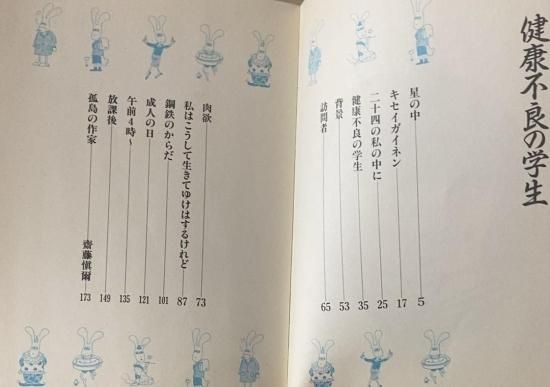 健康不良の学生
星の中 5
キセイガイネン 17
二十四の私の中に 25
健康不良の学生 35
背景 53
訪問者 65
肉欲 73
私はこうして生きてゆけはするけれど 87
鋼鉄のからだ 101
成人の日 121
午前4時〜 135
放課後 149
孤島の作家 齋藤愼爾 173